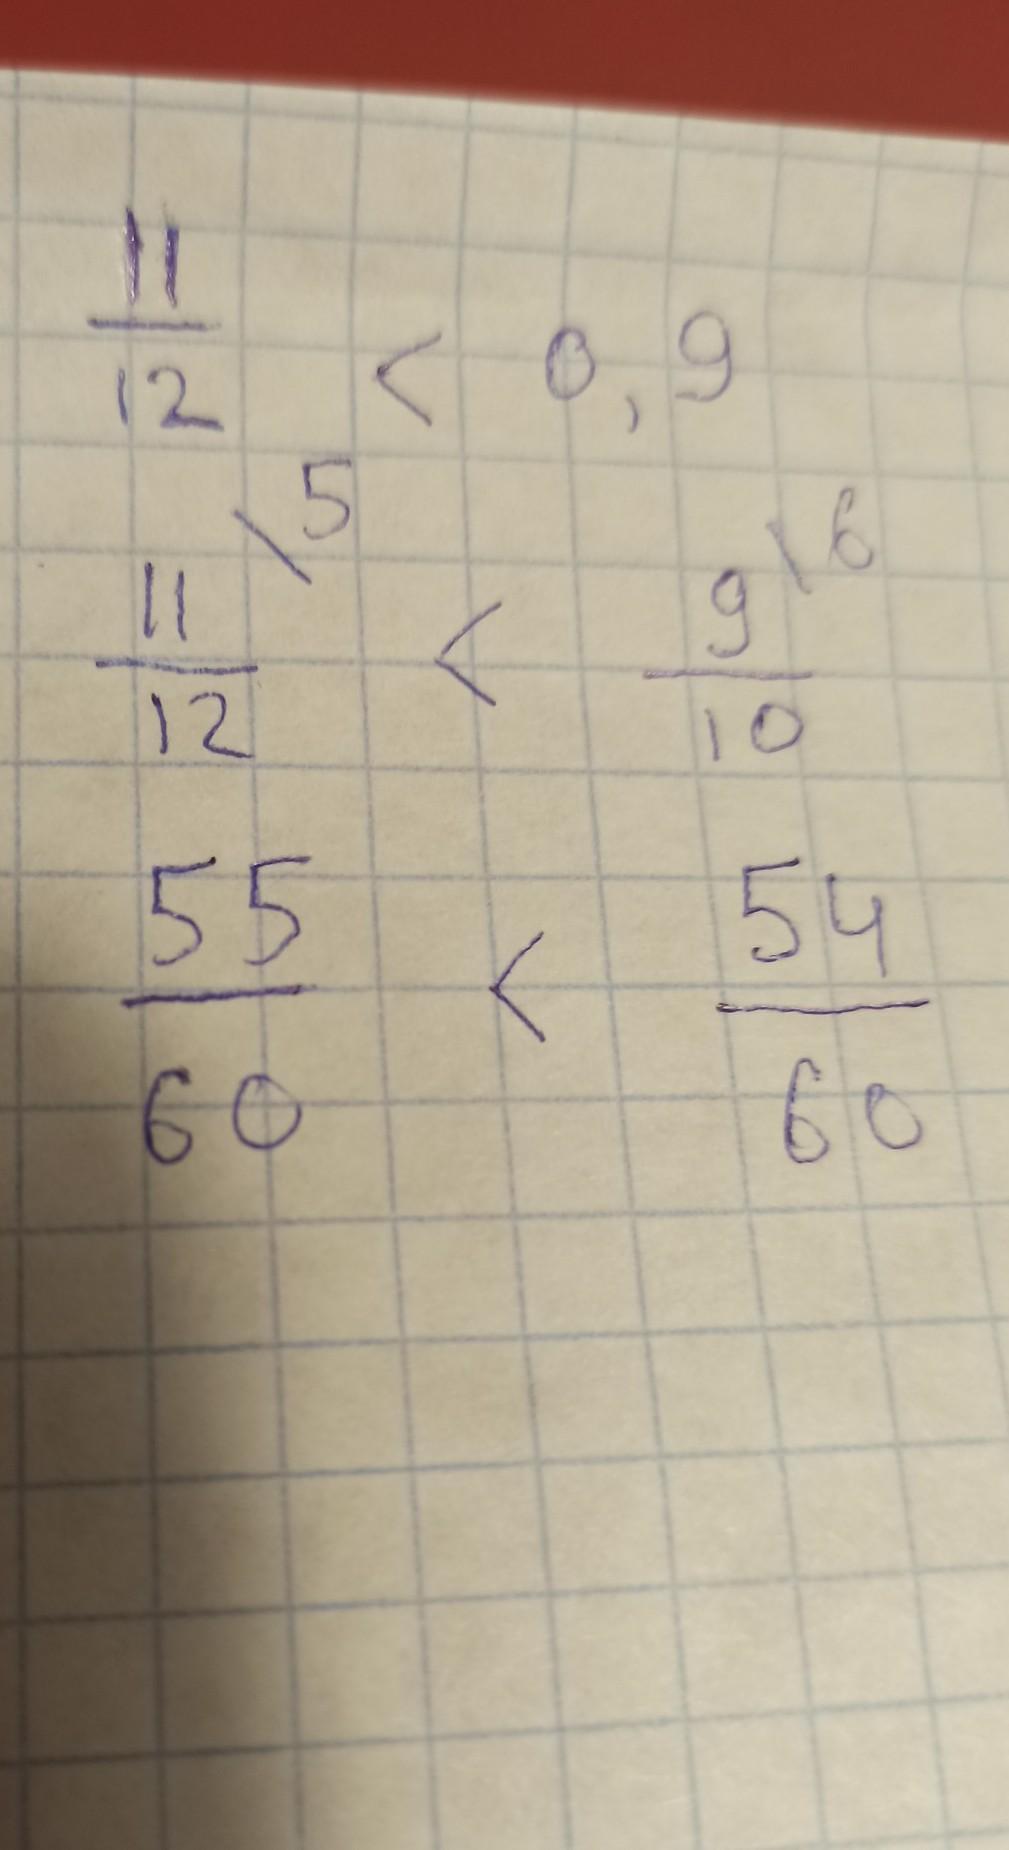 11/12 < 0,9
11/12 \5 < 9/10 \6
55/60 < 54/60